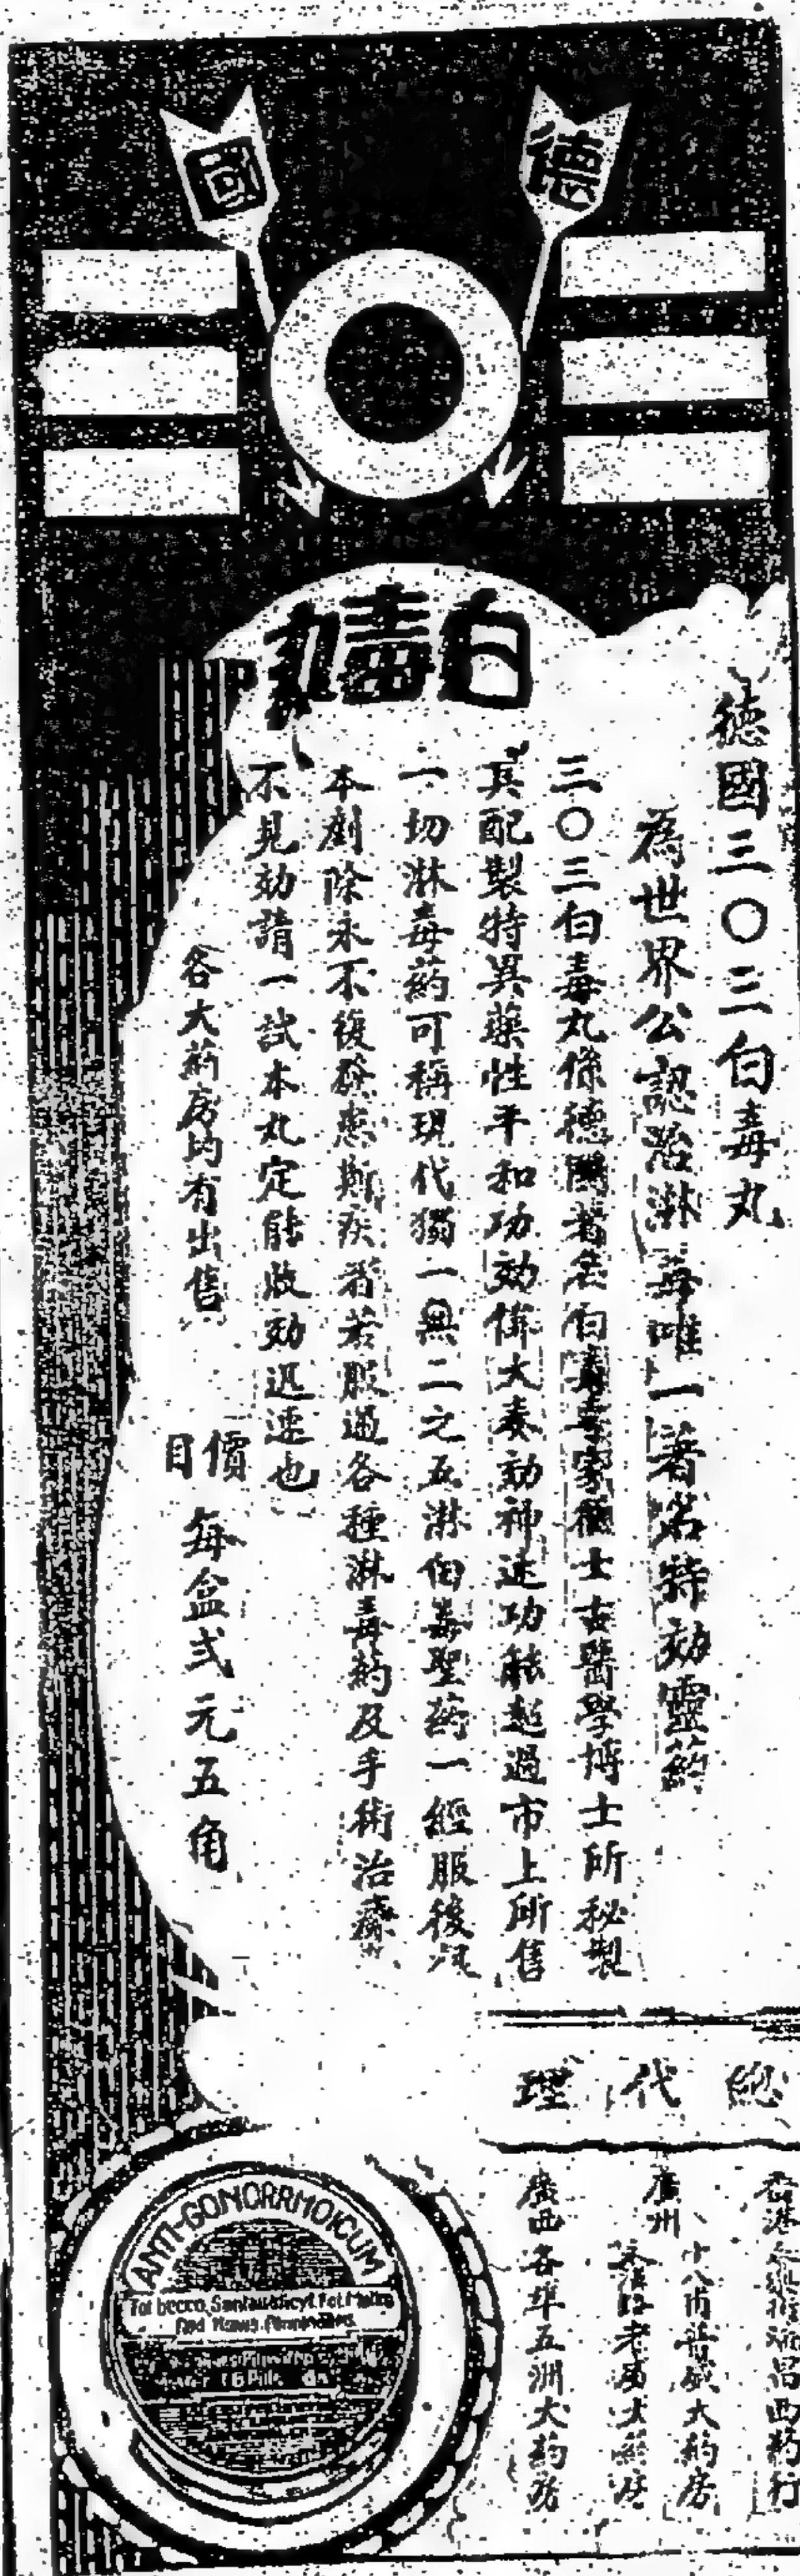 德國
三〇三
白毒丸
德國三〇三白毒丸
為世界公認治淋毒唯一著名特効靈葯
三〇三白毒丸係德國著名白毒專家 士 醫學博士所秘製
其配製特異藥性平和功効偉大奏効神速功能超過市上所售
一切淋毒葯可稱現代獨一無二之五淋白毒聖葯一經服後
本剷除永不復發患斯疾者若服過各種淋毒葯及手術治療
不見効請一試本丸定能收効迅速也
各大葯房均有出售
價目
每盒弍元五角
總代理
香港 昌西葯行
廣州
十八甫 大葯房
老 大葯房
廣西各埠五洲大葯房
ANTI-GONORRHOICUM